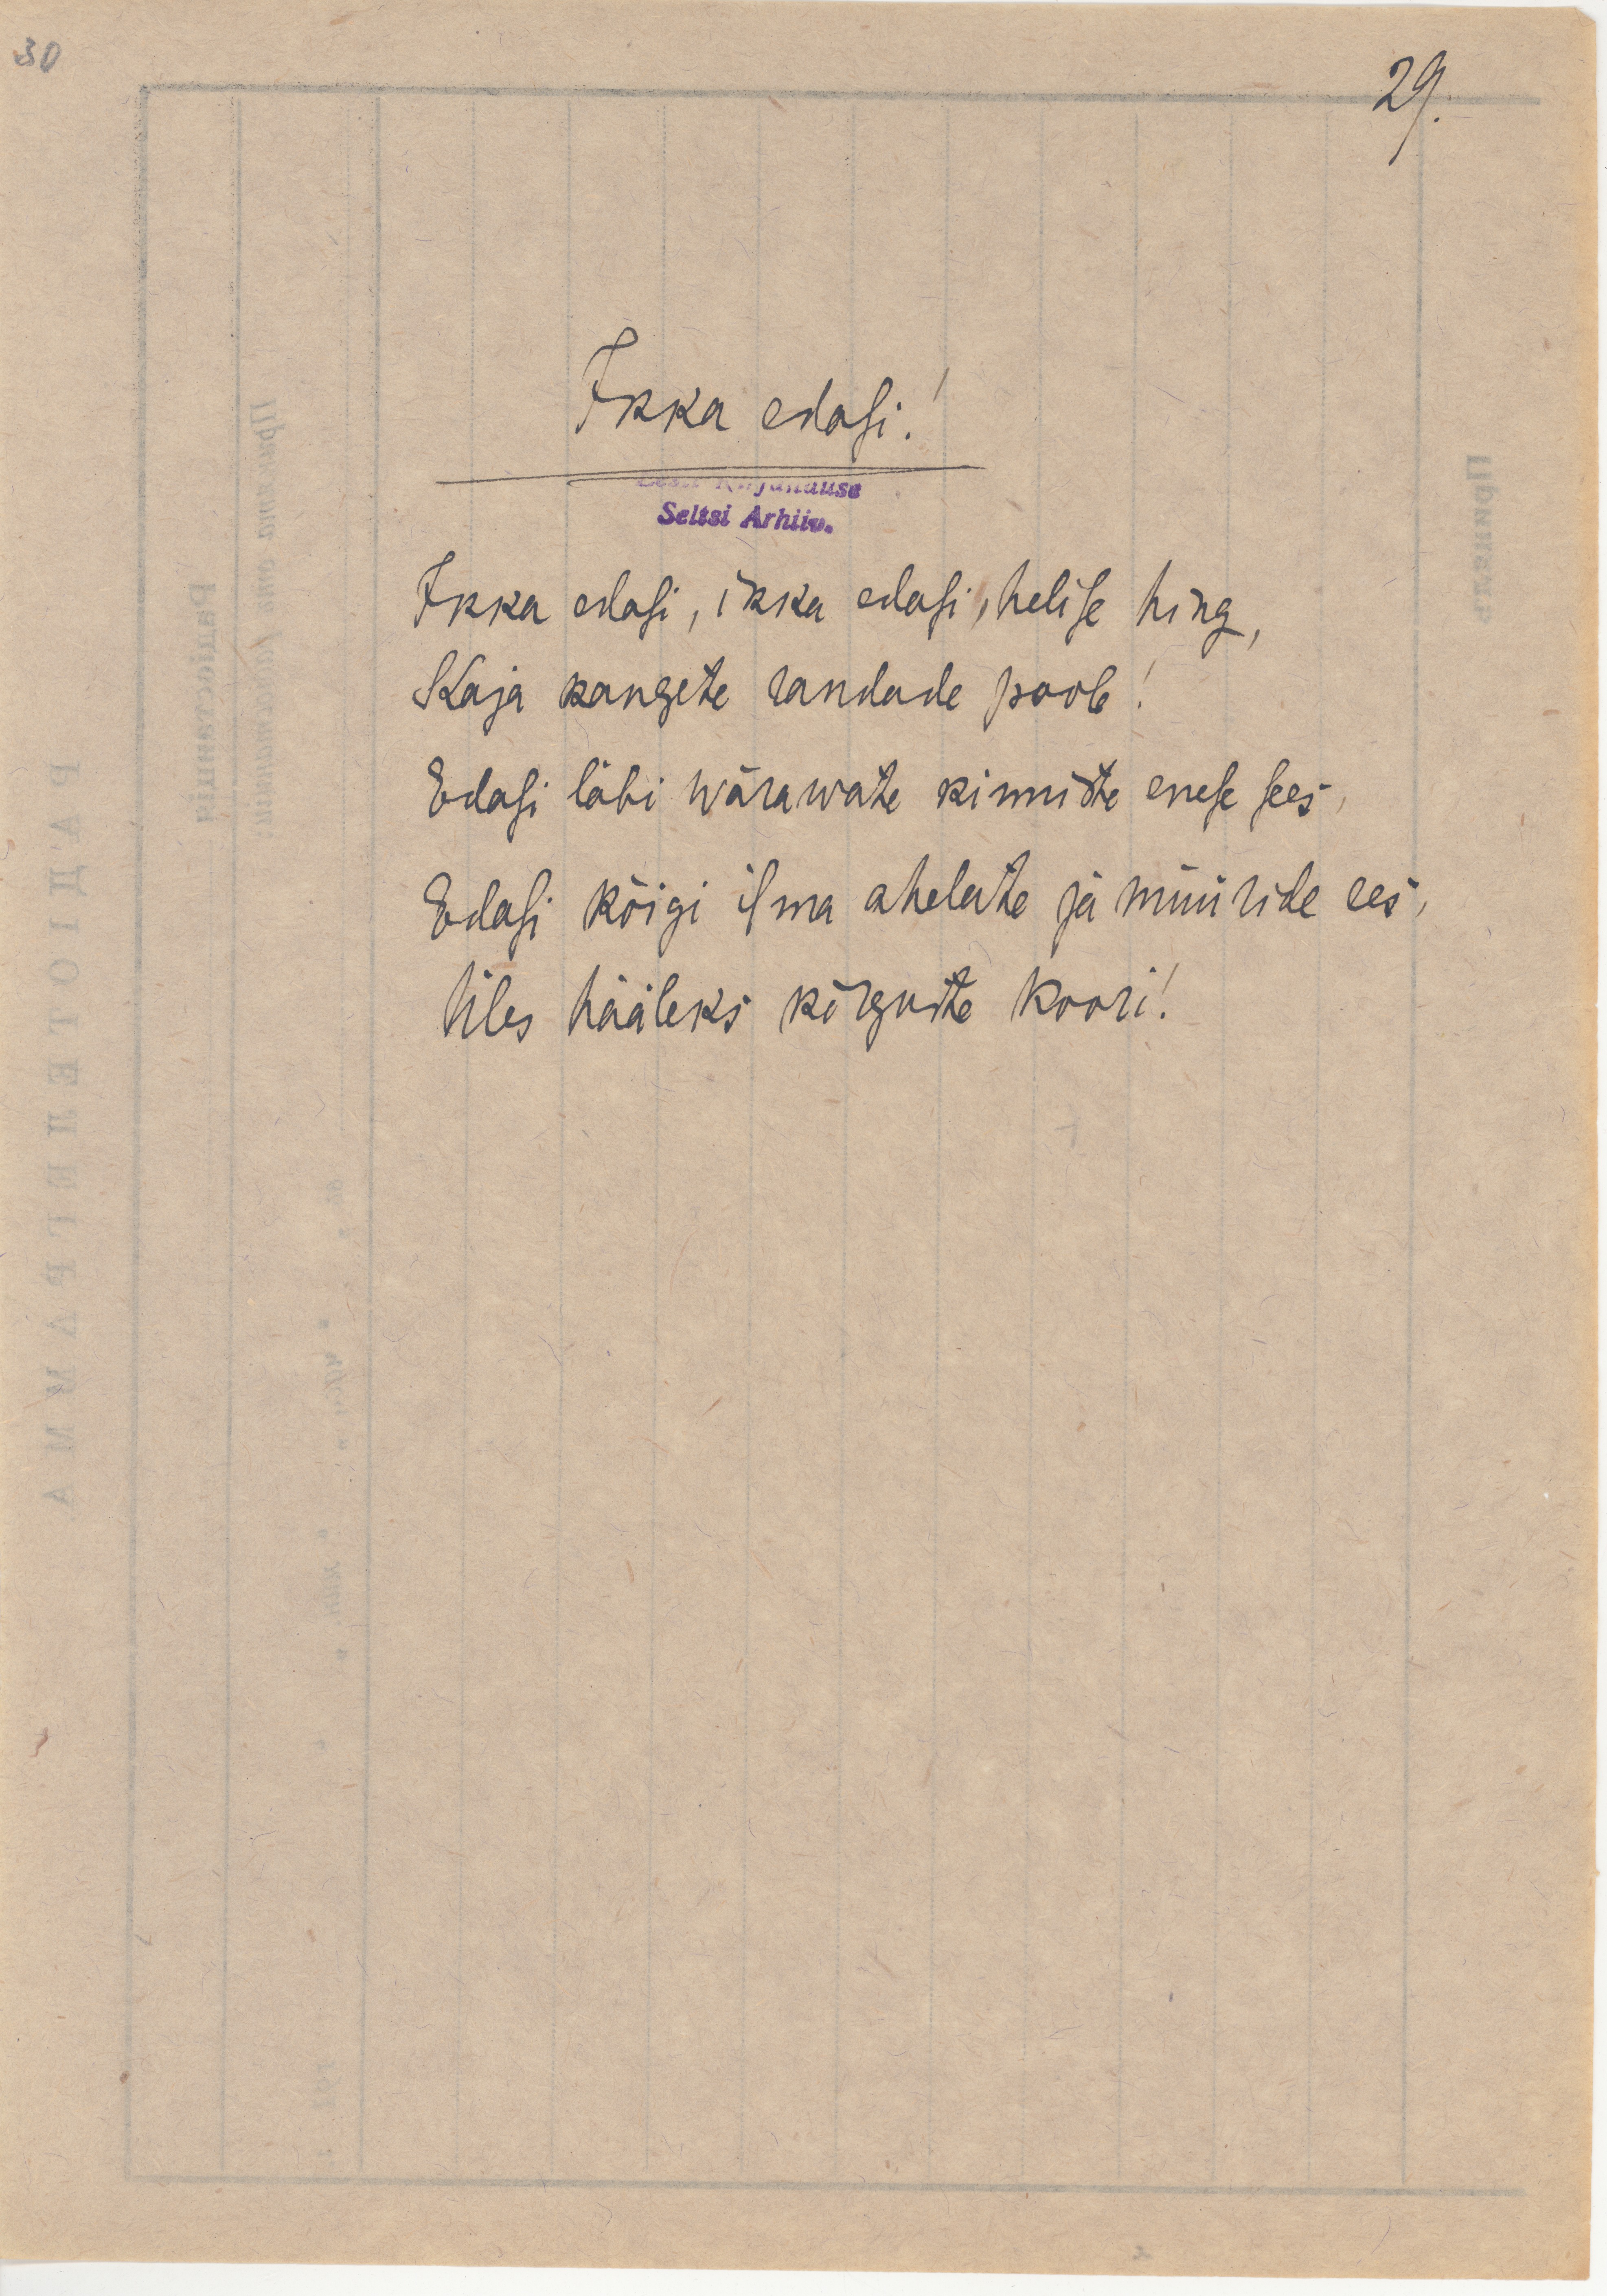 30
29.
Ikka edasi!
Eesti Kirjanduse
Seltsi Arhiiv.
Ikka edasi, ikka edasi, helise hing,
Kaja kangete randade poole!
Edasi läbi wärawate kinniste enese sees,
Edasi kõigi ilma ahelate ja müüride ees,
Üles hääleks kõrguste koori!
РАДІОТЕЛЕГРАММА
Радіостанція